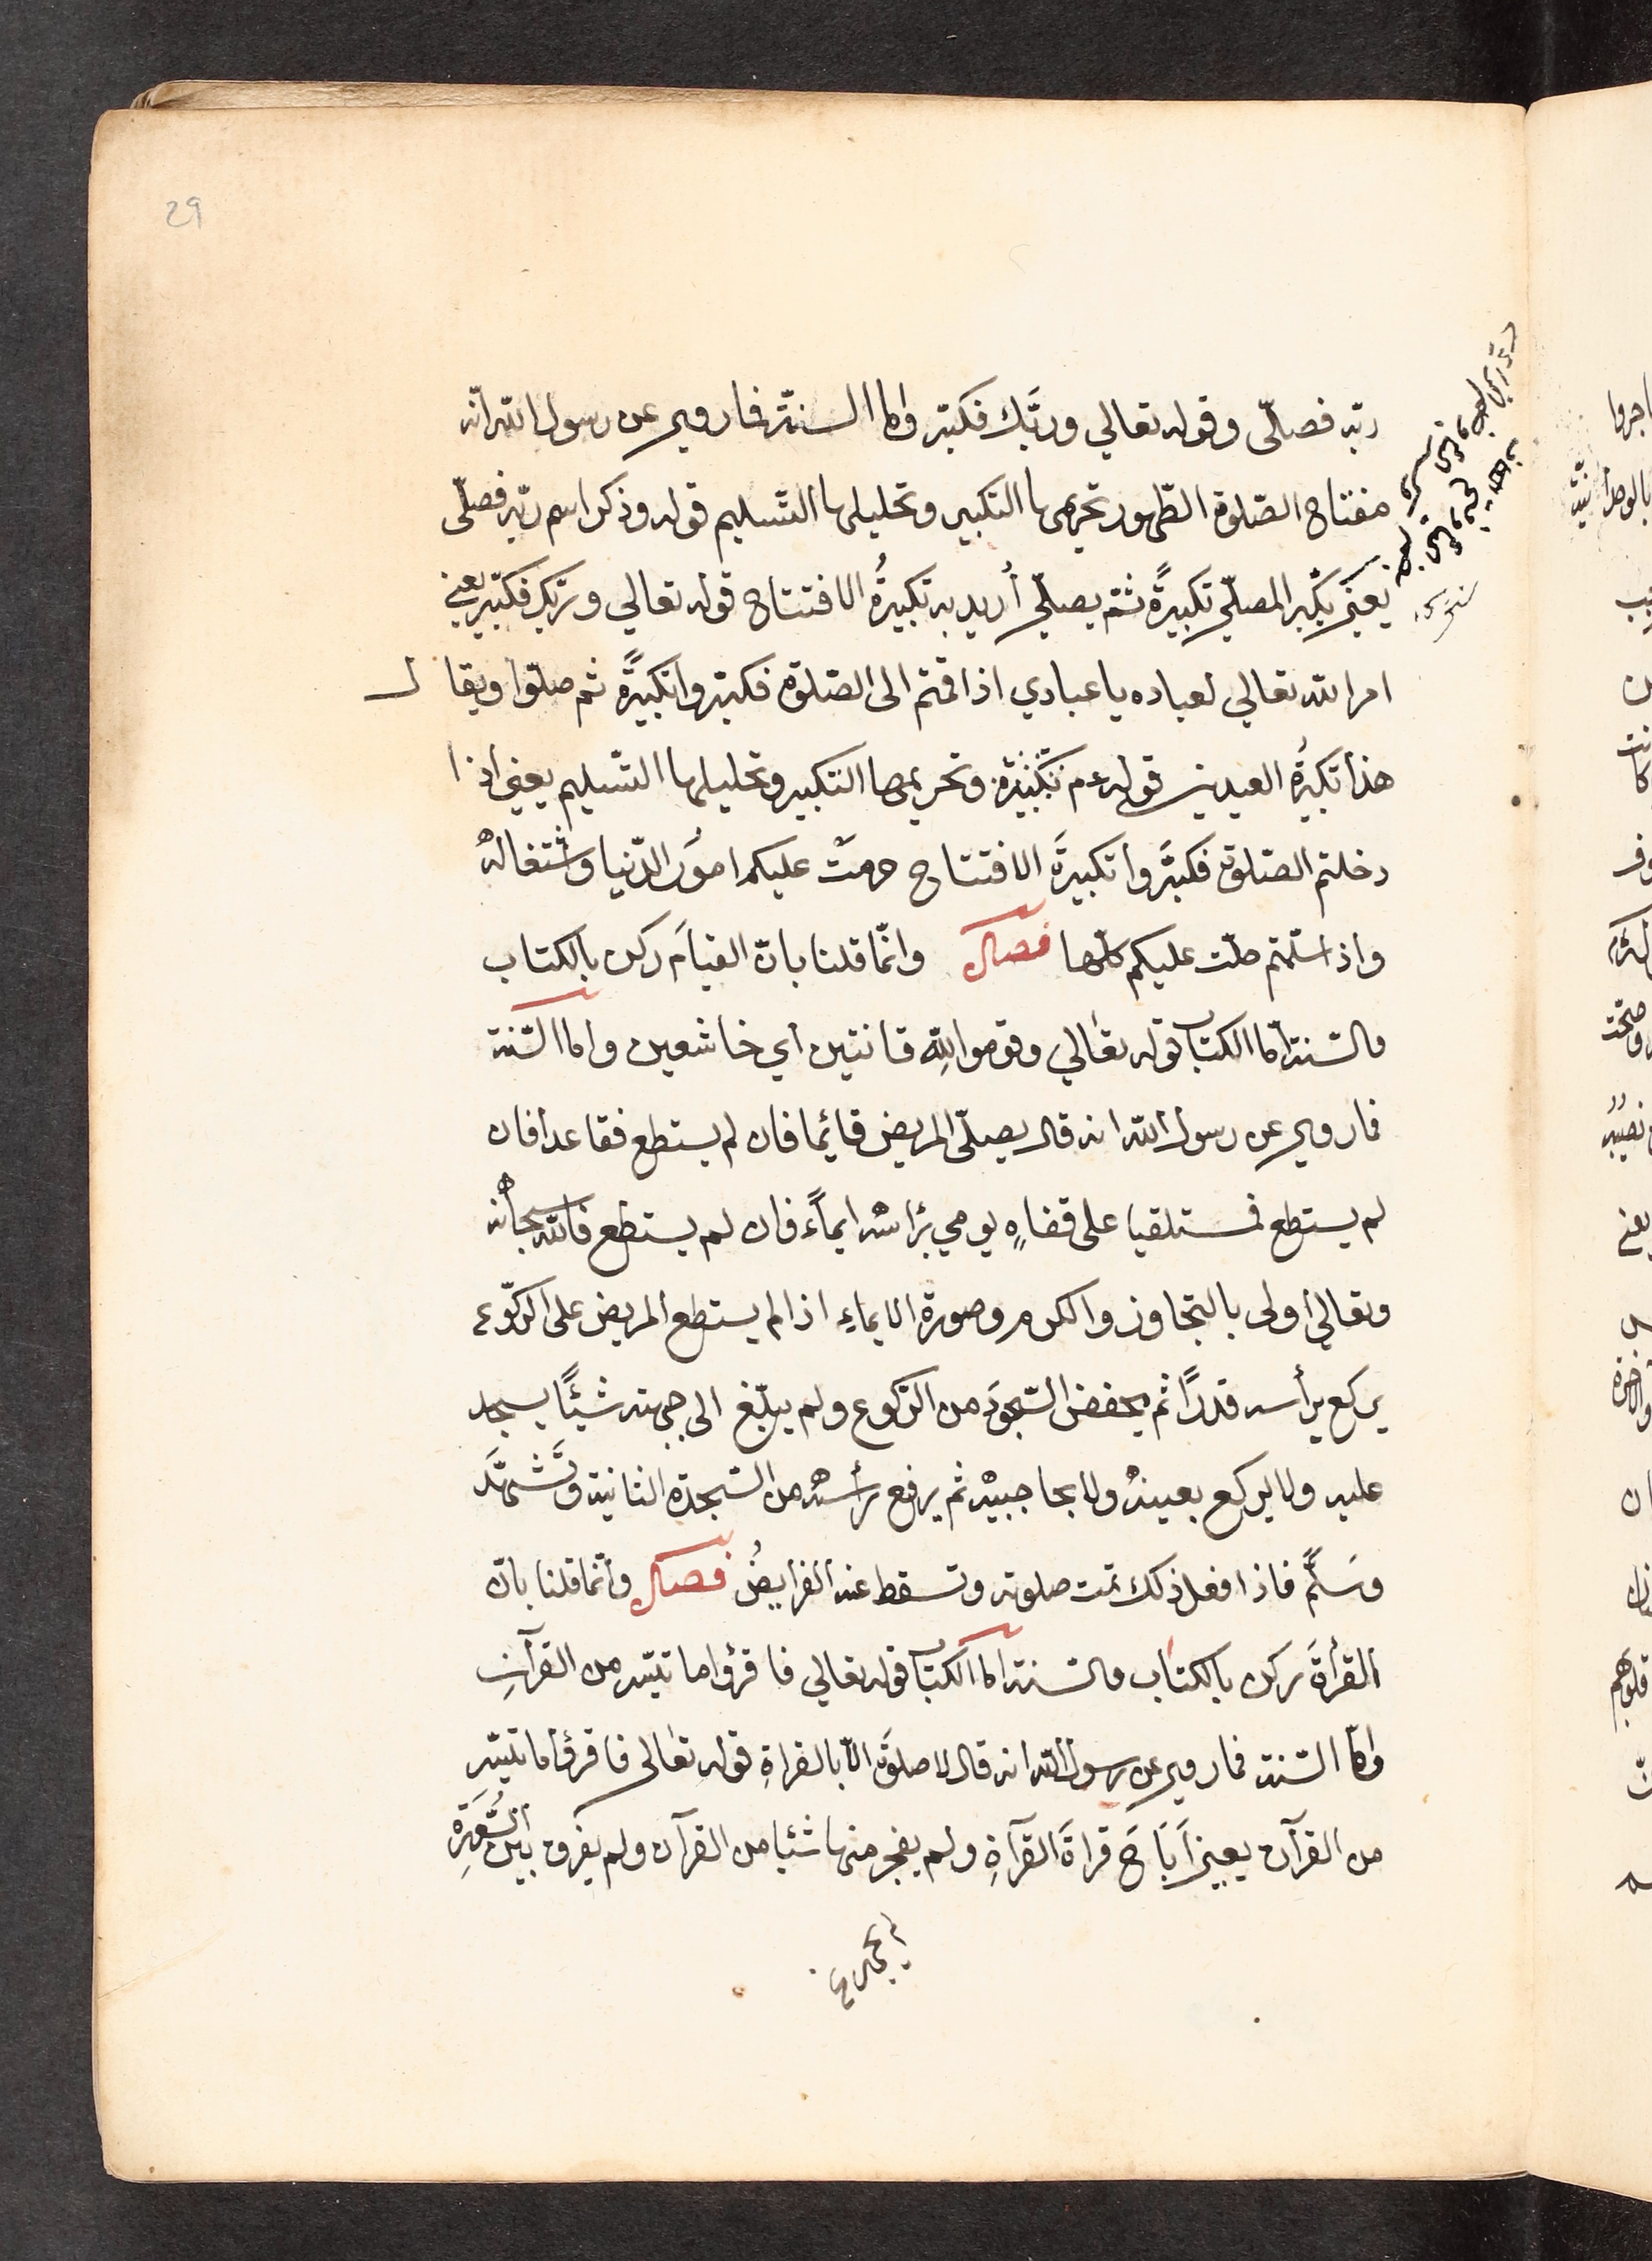 29
ربّه فصلّى وقوله تعالي وربّك فكبّر وامّا السنّة فما روي عن رسول الله انّه
مفتاح الصّلوة الطّهور تحريمها التكبير وتحليلها التّسليم قوله وذكر اسم ربّه فصلّى
يعني يكبّر المصلّي تكبيرةً ثمّ يصلّي أريد به تكبيرةُ الافتتاح قوله تعالي وربّك فكبّر يعني
امر الله تعالي لعباده يا عبادي اذا قمتم الى الصّلوة فكبّروا تكبيرةً ثم صلّوا ويقال
هذا تكبيرةُ العيدين قوله عم تكبيرة وتحريمها التكبير وتحليلها التّسليم يعني اذا
دخلتم الصّلوة فكبّروا تكبيرةَ الافتتاح حرمت عليكم امور الدّنيا واشتغاله
واذ اسلّمتم حلّت عليكم كلّها فصل وانّما قلنا بانّ القيامَ ركن بالكتاب
والسّنة امّا الكتاب قوله تعالي وقوموا لله قانتين أي خاشعين وامّا السّنة
فما روي عن رسول الله انه قال يصلّى المريض قائما فان لم يستطع فقاعدا فان
لم يستطع فمستلقيا على قفاه يومي برأسه ايماءً فان لم يستطع فالله سبحانه
وتعالي أولى بالتجاوز والكرم وصورة الايماء اذا لم يستطع المريض على الركّوع
يركع برأسه قدرًا ثم يخفض السّجودَ من الرّكوع ولم يبلّغ الى جبهته شيئًا يسجد
عليه ولا يركع بعينه ولا بحاجبيه ثم يرفع رأسه من السّجدة الثانية وتشهّد
وسلّم فاذا فعل ذلك تمت صلوته وتسقط عنه الفرايضُ فصل وانّما قلنا بانّ
القرأةَ ركن بالكتاب والسّنة امّا الكتاب قوله تعالي فاقرؤا ما تيسّر من القرآن
وامّا السّنة فما روي عن رسول الله انه قال لا صلوةَ الّا بالقراة قوله تعالى فاقرؤا ما تيسّر
من القرآن يعني أباحَ قراةَ القرآن ولم يفجر منها شئيا من القرآن ولم يفرق بين السّورة